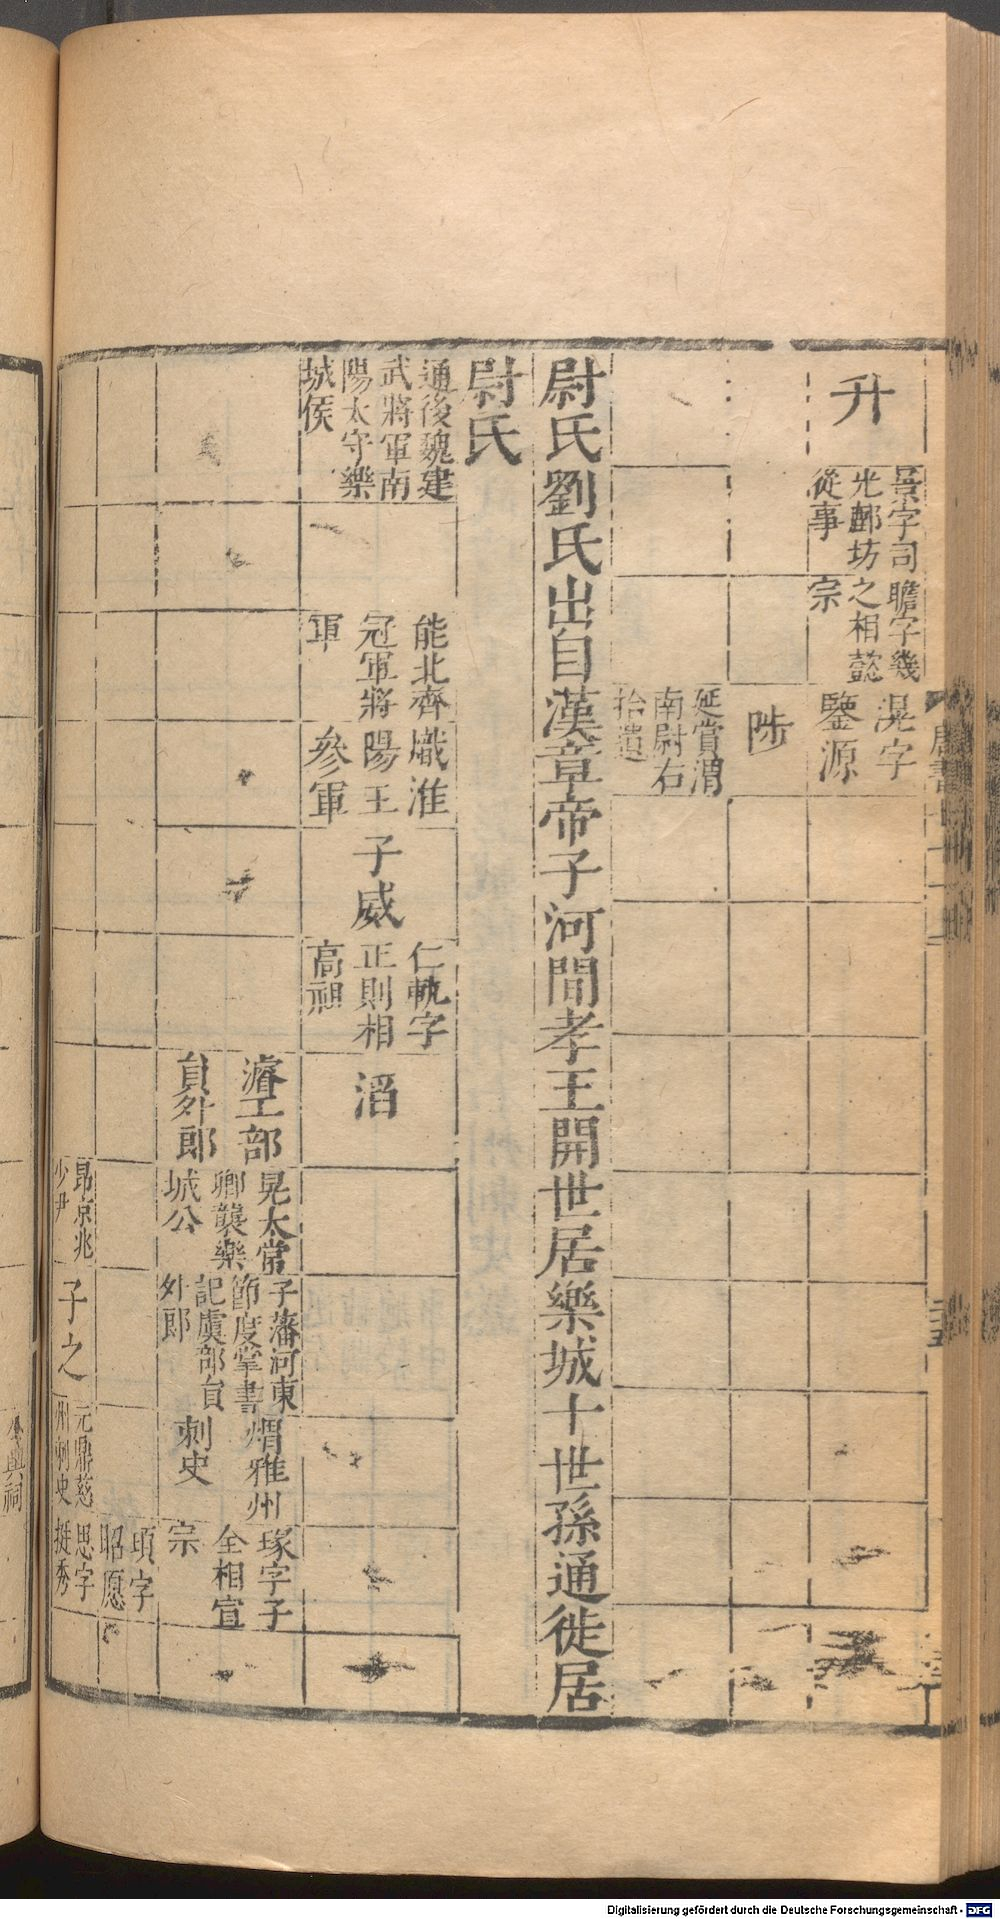 升
景字司
光鄜坊
從事
瞻字幾
之相懿
宗
滉字
鑒源
陟
延賞渭
南尉右
拾遺
尉氏劉氏出自漢章帝子河間孝王開世居樂城十世孫通徙居
尉氏
通後魏建
武將軍南
陽太守樂
城侯
能北齊
冠軍將
軍
熾淮
陽王
參軍
子威
仁軌字
正則相
高祖
滔
濬工部
員外郎
晃太常
卿襲樂
城公
子藩河東
節度掌書
記虞部員
外郎
熠雅州
刺史
瑑字子
全相宣
宗
頊字
昭愿
昂京兆
少尹
子之
元鼎慈
州刺史
思字
挺秀
唐書
Digitalisierung gefördert durch die Deutsche Forschungsgemeinschaft - DFG